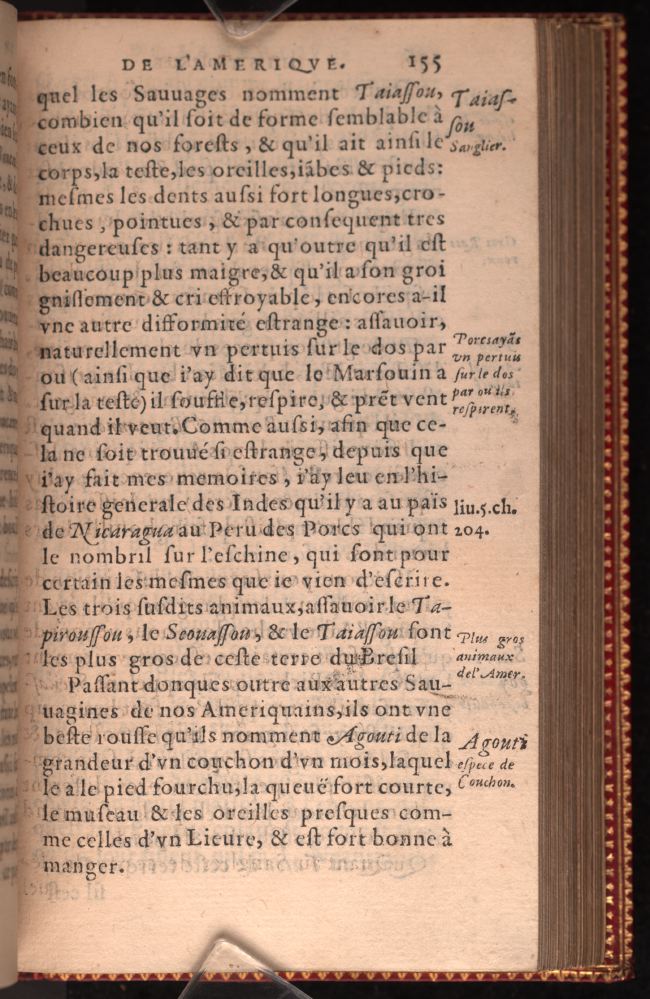 DE L'AMERIQVE. 155
quel les Sauuages nomment Taiaſſou,
combien qu'il ſoit de forme ſemblable à
ceux de nos foreſts, & qu'il ait ainſi le
corps, la teſte, les oreilles, iãbes & pieds:
meſmes les dents auſsi fort longues, cro-
chues, pointues, & par conſequent tres
dangereuſes: tant y a qu'outre qu'il eſt
beaucoup plus maigre, & qu'il a ſon groi
gniſſement & cri effroyable, encores a-il
vne autre difformité eſtrange: aſſauoir,
naturellement vn pertuis ſur le dos par
ou (ainſi que i'ay dit que le Marſouin a
ſur la teſte) il ſouffle, reſpire, & prẽt vent
quand il veut. Comme auſsi, afin que ce-
la ne ſoit trouué ſi eſtrange, depuis que
i'ay fait mes memoires, i'ay leu en l'hi-
ſtoire generale des Indes qu'il y a au païs
de Nicaragua au Peru des Porcs qui ont
le nombril ſur l'eſchine, qui ſont pour
certain les meſmes que ie vien d'eſcrire.
Les trois ſuſdits animaux, aſſauoir le Ta-
pirouſſou, le Seouaſſou, & le Taiaſſou ſont
les plus gros de ceſte terre du Breſil
Paſſant donques outre aux autres Sau-
uagines de nos Ameriquains, ils ont vne
beſte rouſſe qu'ils nomment Agouti de la
grandeur d'vn couchon d'vn mois, laquel
le a le pied fourchu, la queuë fort courte,
le muſeau & les oreilles preſques com-
me celles d'vn Lieure, & eſt fort bonne à
manger.
Taiaſ-
ſou
Sanglier.
Porcs ayãs
vn pertuis
ſur le dos
par ou ils
reſpirent.
liu.5.ch.
204.
Plus gros
animaux
de l'Amer.
Agouti
eſpece de
Couchon.